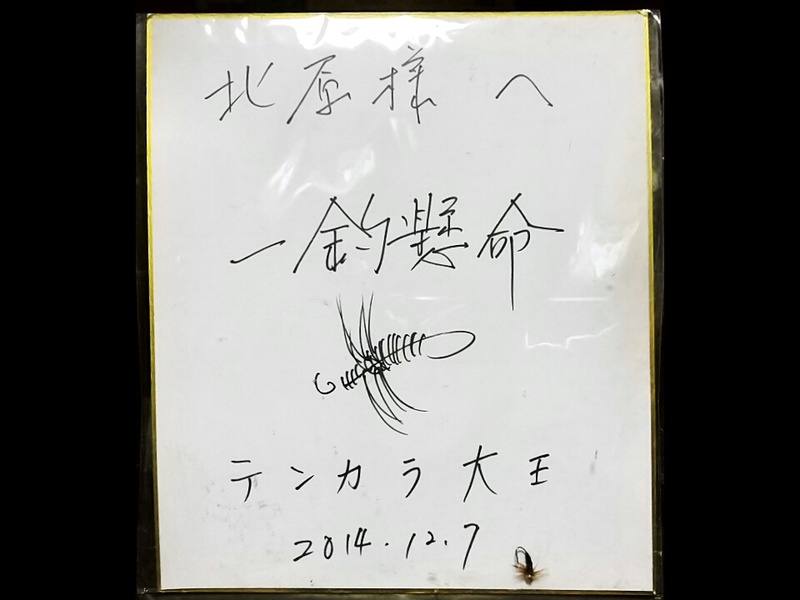 北原様 へ
一釣懸命
テンカラ大王
2014.12.7